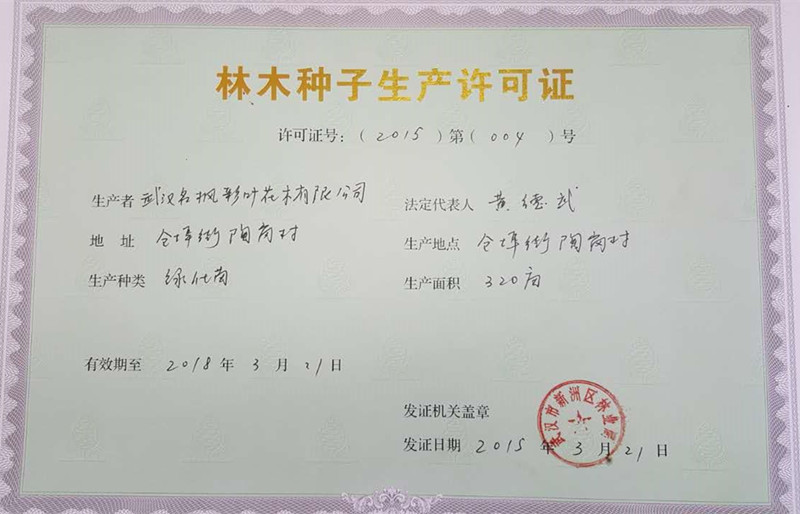 林木种子生产许可证
许可证号：（2015）第（004）号
生产者 武汉名枫彩叶花木有限公司
法定代表人 黄德武
地 址 仓埠街陶岗村
生产地点 仓埠街陶岗村
生产种类 绿化苗
生产面积 320亩
有效期至 2018年3月21日
发证机关盖章
武汉市新洲区林业局
发证日期 2015年3月21日